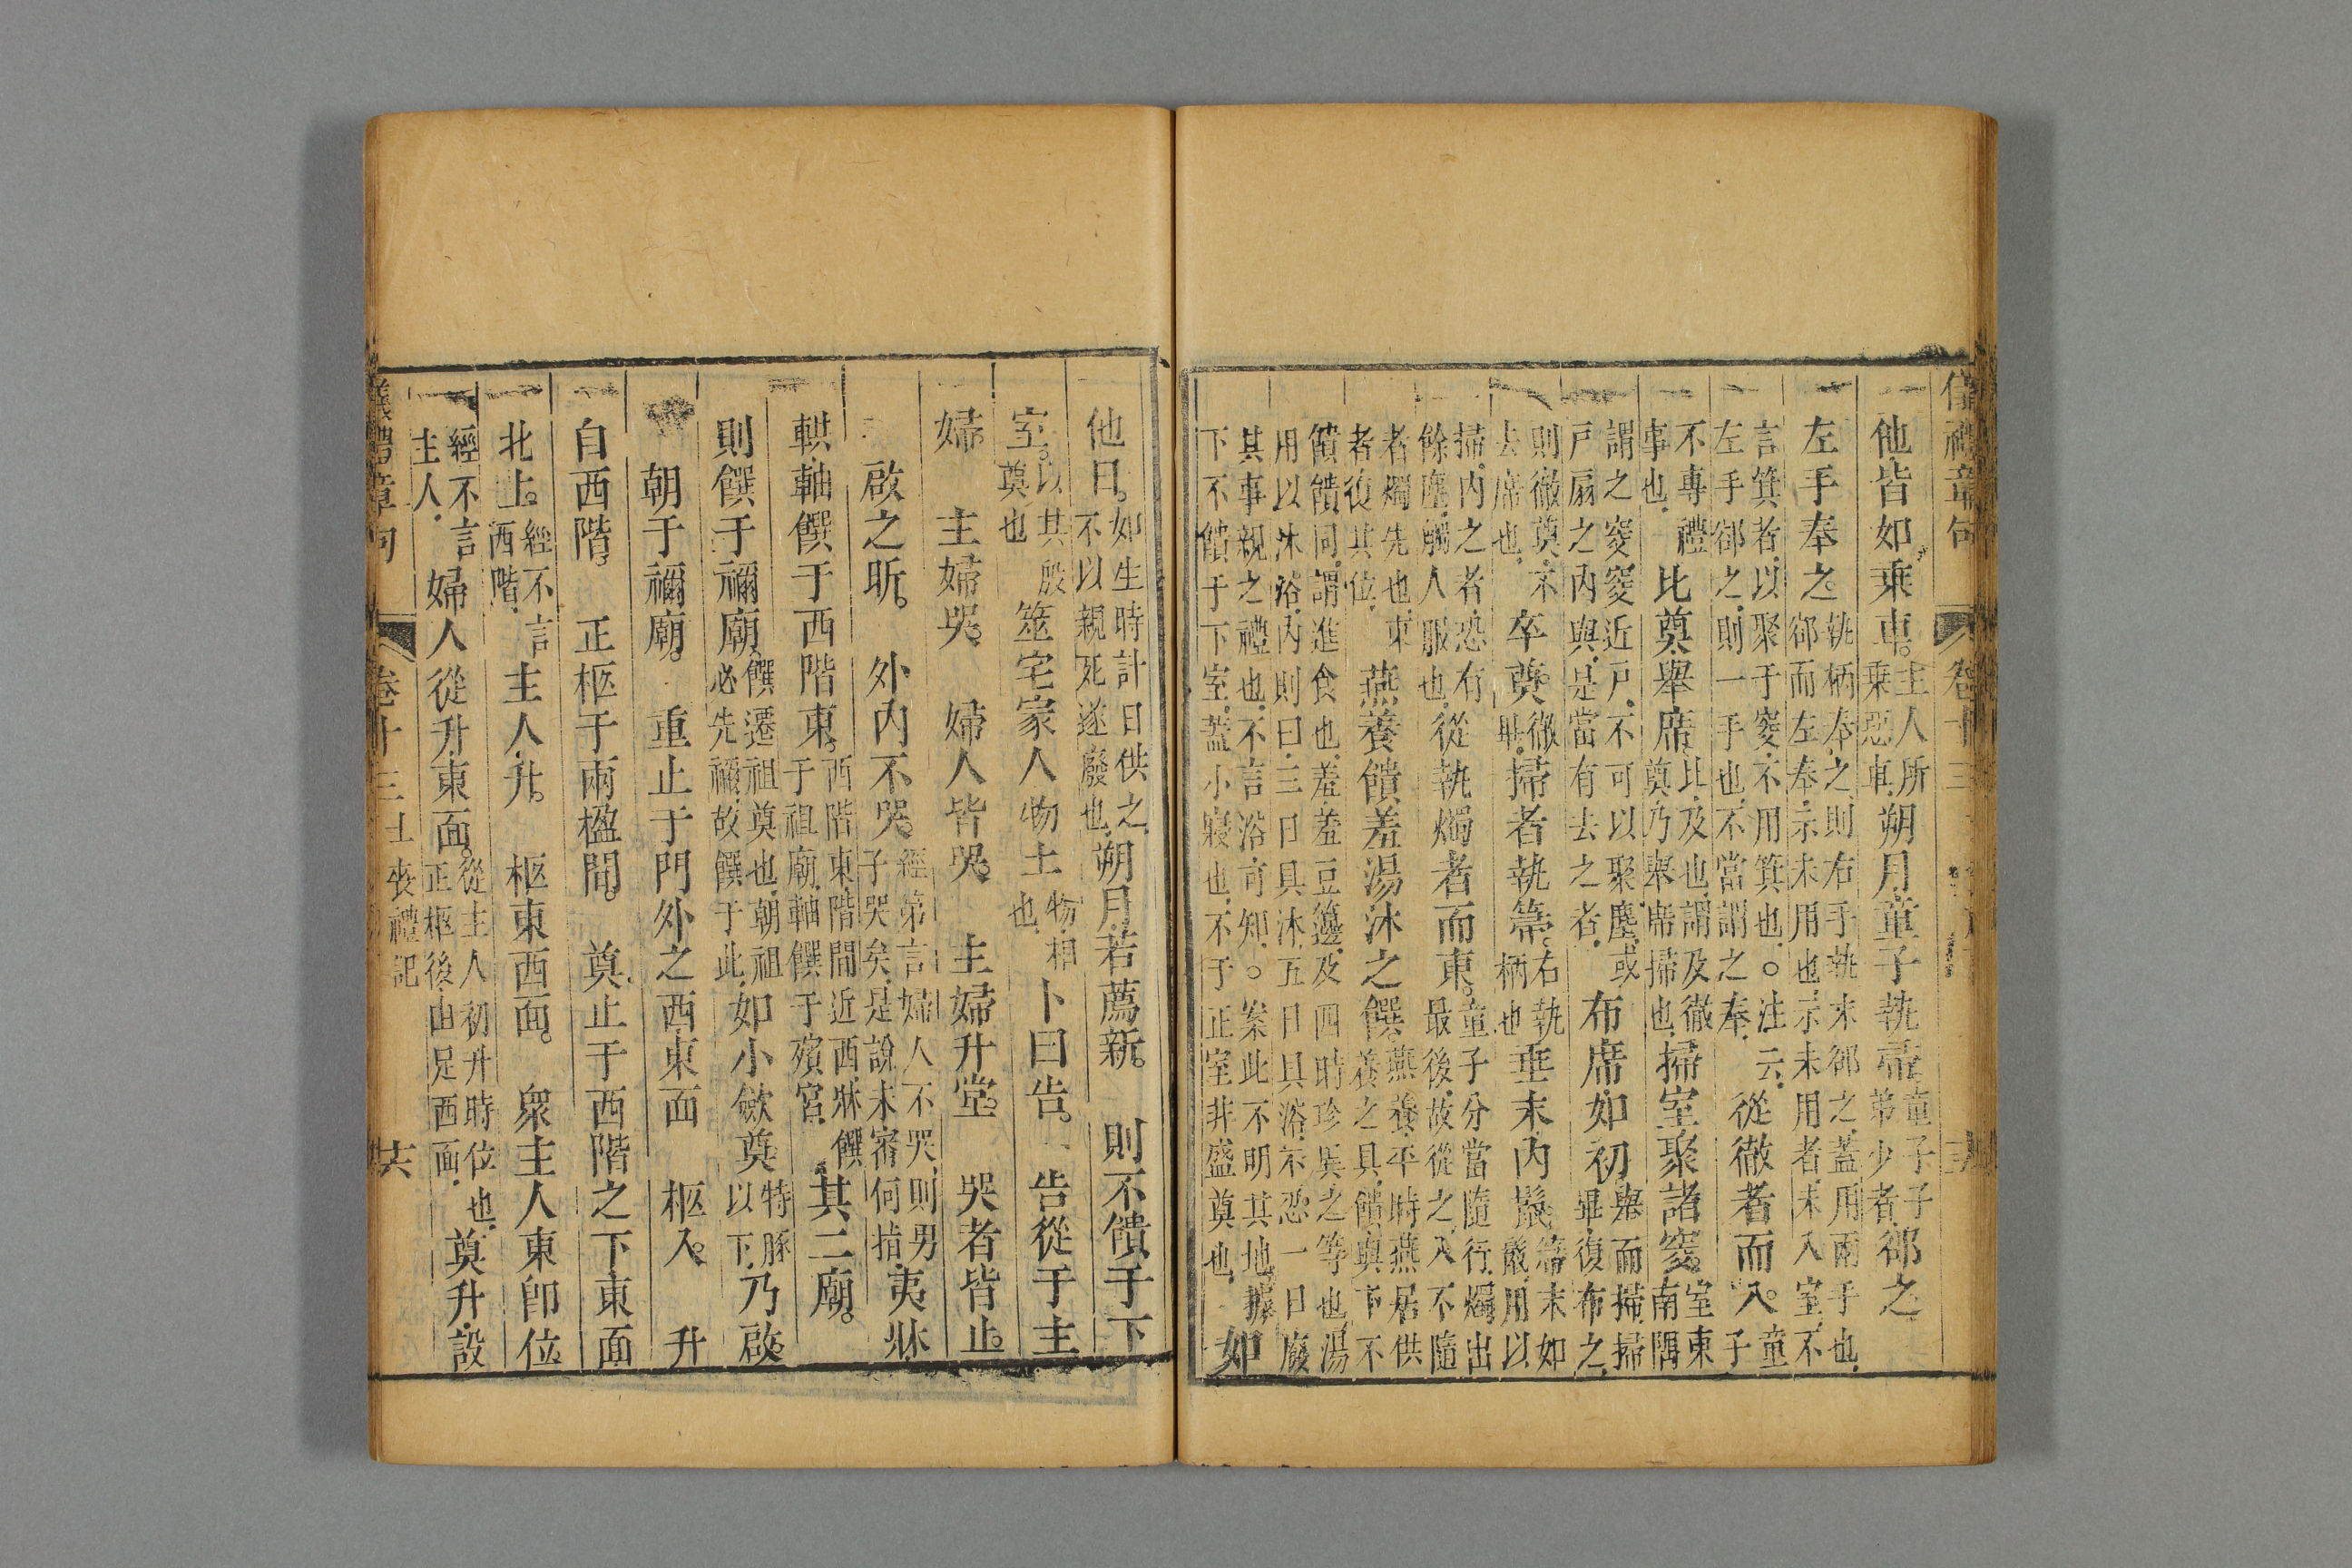 儀禮章句 卷十三
他皆如乘車。主人所乘惡車朔月童子執帚童子子弟少者卻之
左手奉之執柄奉之則右手執末卻之蓋用兩手也卻而左奉示未用也示未用者未入室不
言箕者以聚于窔不用箕也○注云左手卻之則一手也不當謂之奉從徹者而入童子
不專禮事也比奠舉席比及也謂及徹奠乃舉席掃也掃室聚諸窔室東南隅
謂之窔窔近戶不可以聚塵或戶扇之內與是當有去之者布席如初舉而掃掃畢復布之
則徹奠不去席也卒奠徹畢掃者執帚右執柄也垂末內鬛帚末如鬛用以
掃內之者恐有餘塵觸人服也從執燭者而東童子分當隨行燭出最後故從之入不隨
者燭先也東者復其位燕養饋羞湯沐之饌燕養平時燕居供養之具饋與下不
饋饋同謂進食也羞羞豆籩及四時珍異之等也湯用以沐浴內則曰三日具沐五日具浴示恐一日廢
其事親之禮也不言浴可知○案此不明其地據下不饋于下室蓋小寢也不于正室非盛奠也如
他日。如生時計日供之不以親死遂廢也朔月若薦新。則不饋于下
室。以其殷奠也筮宅冢人物土物相也卜曰告。告從于主
婦主婦哭。婦人皆哭。主婦升堂。哭者皆止。
啟之昕。外內不哭。經第言婦人不哭則男子哭矣是說未審何指夷牀
輁軸饌于西階東。西階東階間近西牀饌于祖廟軸饌于殯宮其二廟。
則饌于禰廟。饌遷祖奠也朝祖必先禰故饌于此如小斂奠特豚以下乃啟
朝于禰廟。重止于門外之西東面柩入。升
自西階。正柩于兩楹間。奠止于西階之下東面
北上。經不言西階主人升。柩東西面。衆主人東卽位
經不言主人婦人從升東面。從主人初升時位也正柩後由足西面奠升設
儀禮章句 卷十三 士喪禮記 十六